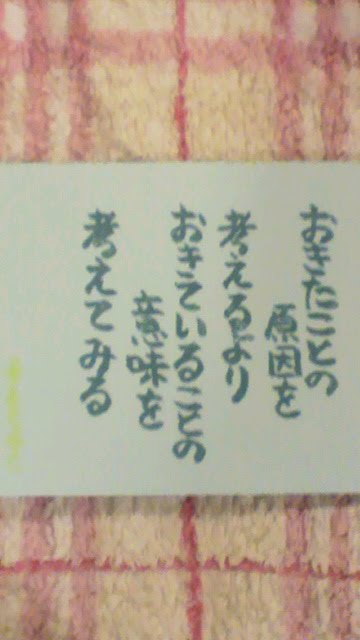 おきたことの
原因を
考えるより
おきていることの
意味を
考えてみる